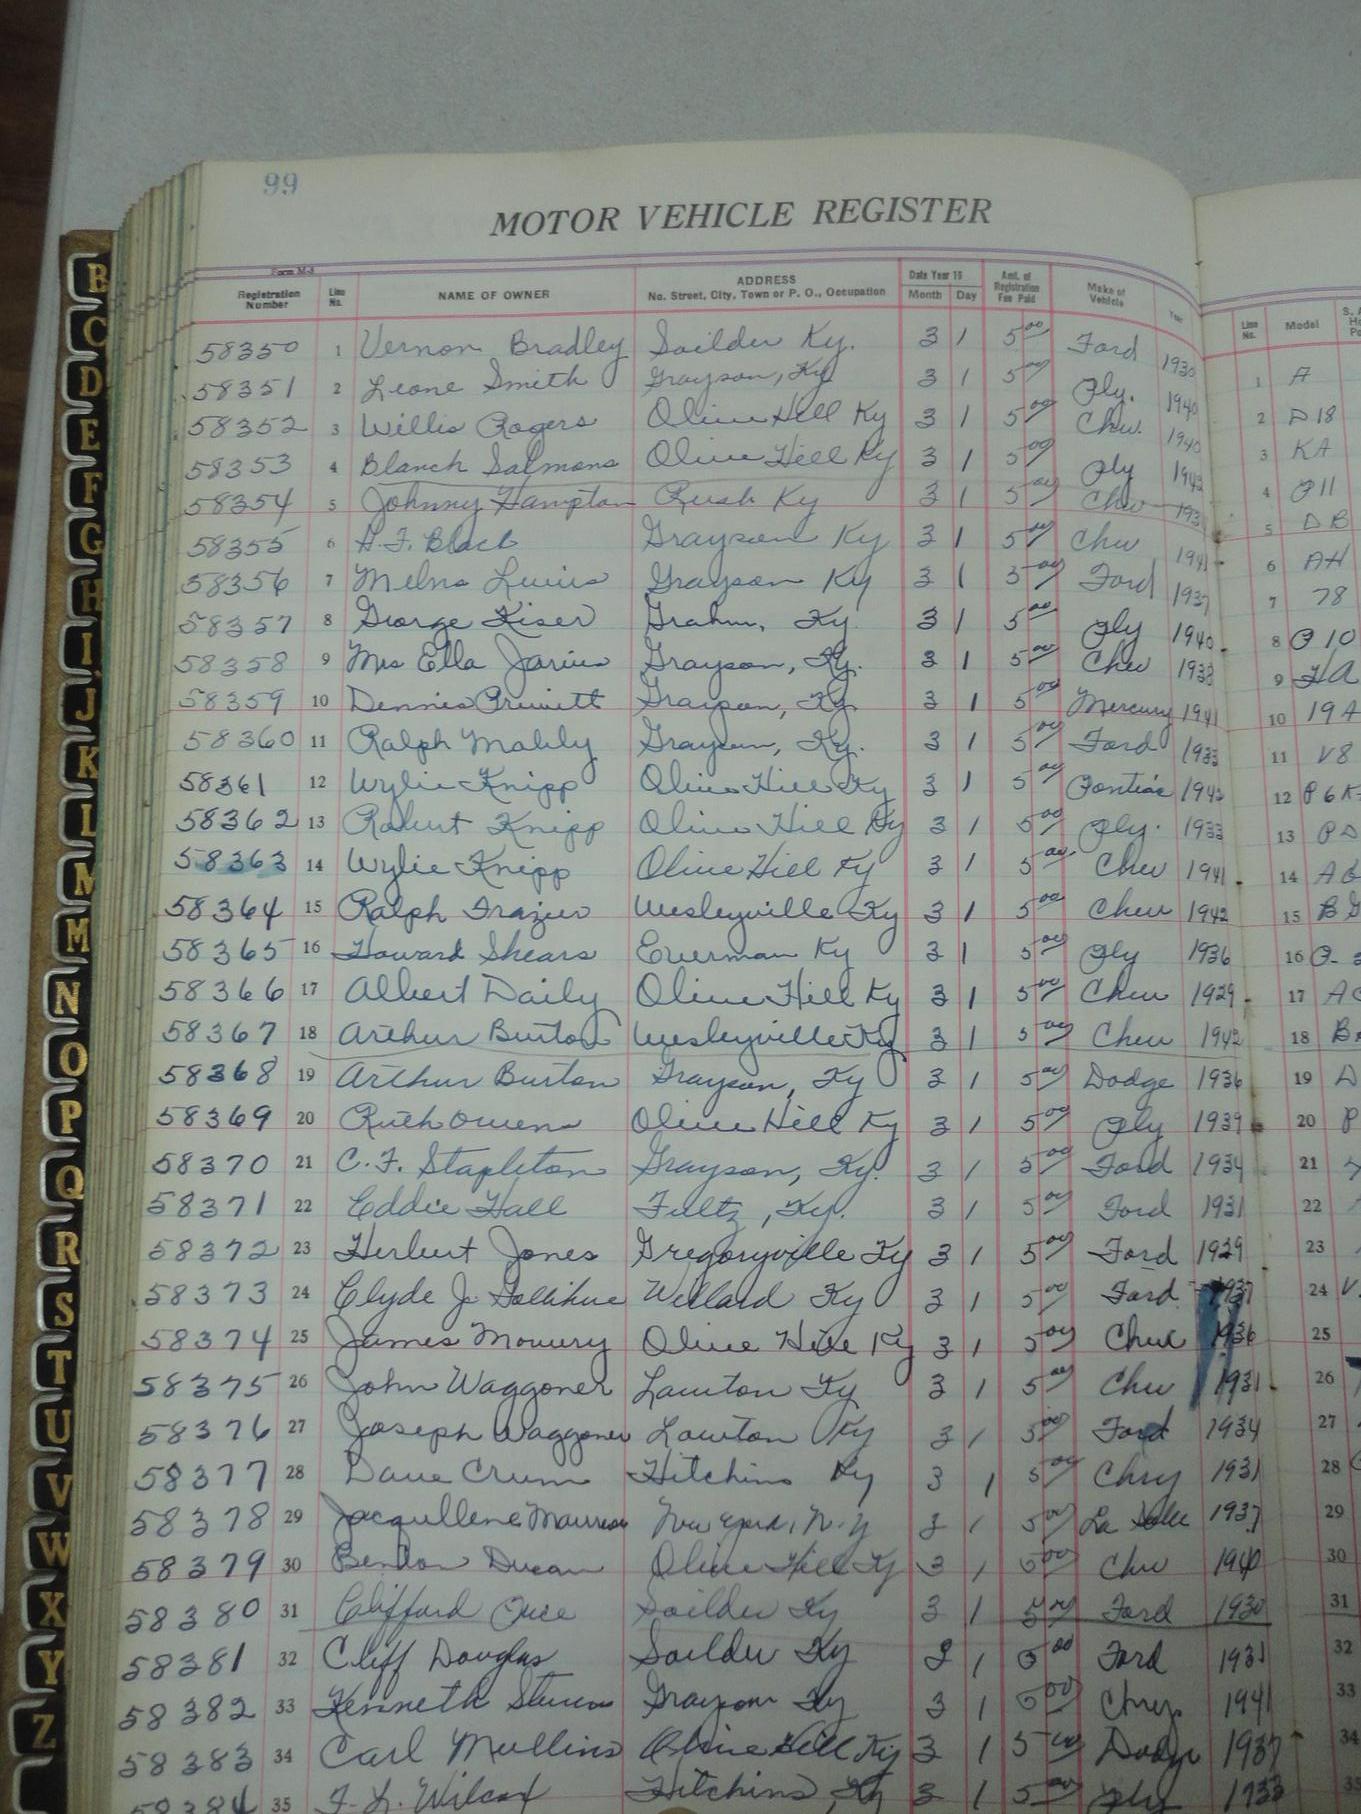 99
MOTOR VEHICLE REGISTER
Form M-3
Registration Number Line No. NAME OF OWNER ADDRESS No. Street, City, Town or P. O., Occupation Date Year 19 Month Day Amt. of Registration Fee Paid Make of Vehicle Year Line No. Model
58350 1 Vernon Bradley Soilder Ky. 3 1 5 00 Ford 1930 1 A
58351 2 Leone Smith Grayson, Ky 3 1 5 00 Ply. 1940 2 D 18
58352 3 Willis Rogers Olive Hill Ky 3 1 5 00 Chev. 1940 3 KA
58353 4 Blanch Salmons Olive Hill Ky 3 1 5 00 Ply 1942 4 P 11
58354 5 Johnny Hampton Rush Ky 3 1 5 00 Chev 5 D B
58355 6 Black Grayson Ky 3 1 5 00 Chev 1941 6 AH
58356 7 Melna Lewis Grayson Ky 3 1 5 00 Ford 1937 7 78
58357 8 George Kiser Grahn, Ky 3 1 5 00 Ply 1940 8 P 10
58358 9 Mrs Ella Grayson, Ky. 3 1 5 00 Chev 1938 9 HA
58359 10 Dennis Pruitt Grayson, Ky. 3 1 5 00 Mercury 1941 10 19 A
58360 11 Ralph Grayson, Ky. 3 1 5 00 Ford 1933 11 V8
58361 12 Wylie Knipp Olive Hill Ky 3 1 5 00 Pontiac 1942 12 P 6 K
58362 13 Robert Knipp Olive Hill Ky 3 1 5 00 Ply. 1933 13 P D
58363 14 Wylie Knipp Olive Hill Ky 3 1 5 00 Chev 1941 14 A G
58364 15 Ralph Frazier Wesleyville Ky 3 1 5 00 Chev 1942 15 B G
58365 16 Howard Shears Everman Ky 3 1 5 00 Ply 1936 16 P-
58366 17 Albert Daily Olive Hill Ky 3 1 5 00 Chev 1929 17 AC
58367 18 Arthur Burton Wesleyville Ky 3 1 5 00 Chev 1942 18 B
58368 19 Arthur Burton Grayson, Ky 3 1 5 00 Dodge 1936 19 D
58369 20 Ruth Owens Olive Hill Ky 3 1 5 00 Ply 1939 20 P
58370 21 C. F. Stapleton Grayson, Ky. 3 1 5 00 Ford 1934 21
58371 22 Eddie Hall Fultz, Ky. 3 1 5 00 Ford 1931 22
58372 23 Herbert Jones Gregoryville Ky 3 1 5 00 Ford 1929 23
58373 24 Clyde J. Gollihue Willard Ky 3 1 5 00 Ford 1937 24 V
58374 25 James Mowery Olive Hill Ky 3 1 5 00 Chev 1936 25
58375 26 John Waggoner Lawton Ky 3 1 5 00 Chev 1931 26
58376 27 Joseph Waggoner Lawton Ky 3 1 5 00 Ford 1934 27
58377 28 Dave Crum Hitchins Ky 3 1 5 00 Chry 1931 28
58378 29 Jacqullene New York, N. Y 3 1 5 00 La Salle 1937 29
58379 30 Benton Olive Hill Ky 3 1 5 00 Chev 1940 30
58380 31 Clifford Rice Soilder Ky 3 1 5 00 Ford 1930 31
58381 32 Cliff Douglas Soilder Ky 3 1 5 00 Ford 1931 32
58382 33 Kenneth Grayson Ky 3 1 5 00 Chry. 1941 33
58383 34 Carl Mullins Olive Hill Ky 3 1 5 00 Dodge 1937 34
58384 35 Wilcox Hitchins, Ky 3 1 5 00 Ply 1933 35
B
C
D
E
F
G
H
I
J
K
L
M
M
N
O
P
Q
R
S
T
U
V
W
X
Y
Z